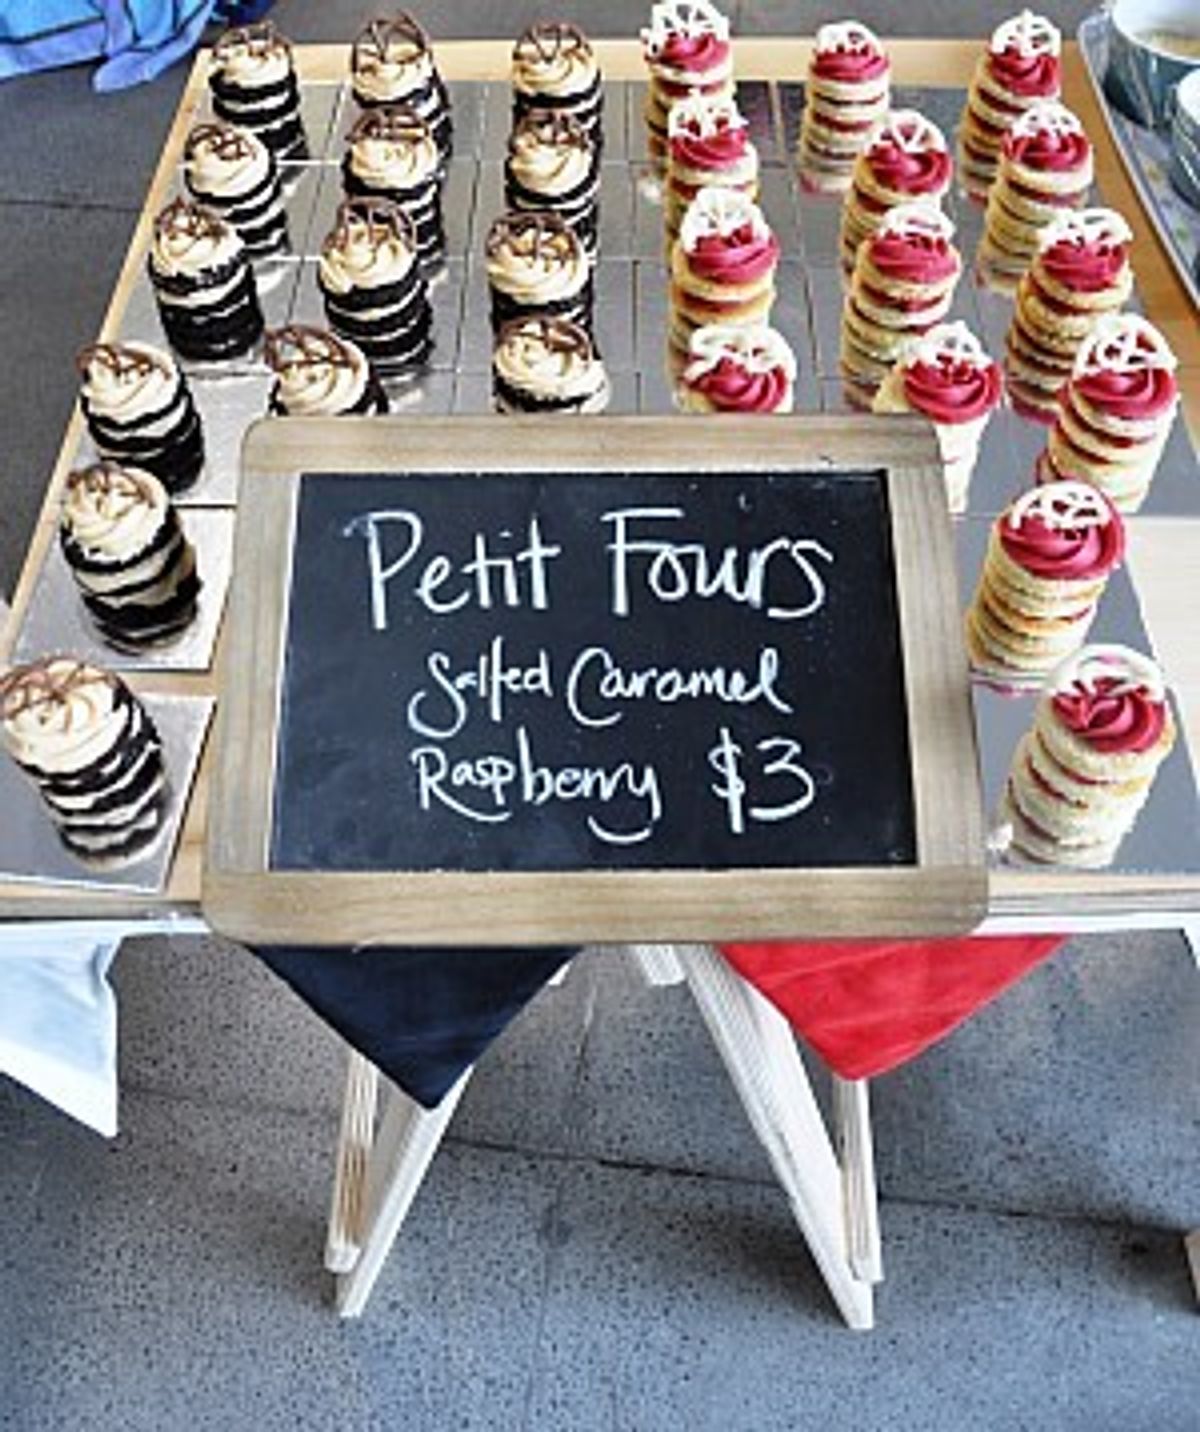 Petit Fours
Salted Caramel
Raspberry $3